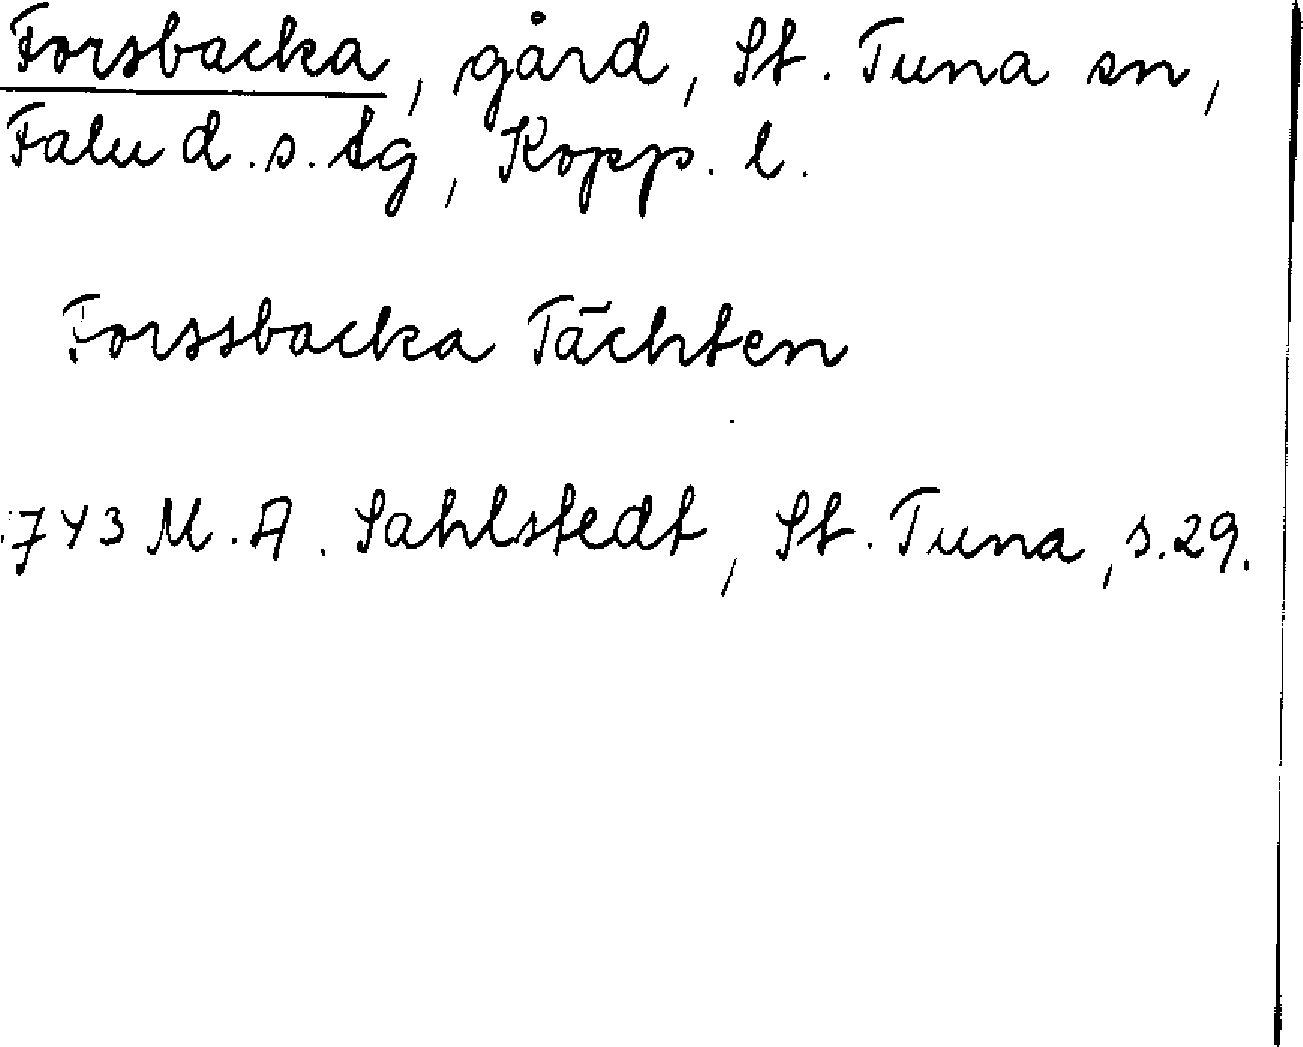 Forsbacka, gård, St. Tuna sn,
Falu d.s. tg, Kopp. l.
Forssbacka Tächten
1743 M.A. Sahlstedt, St. Tuna, s.29.